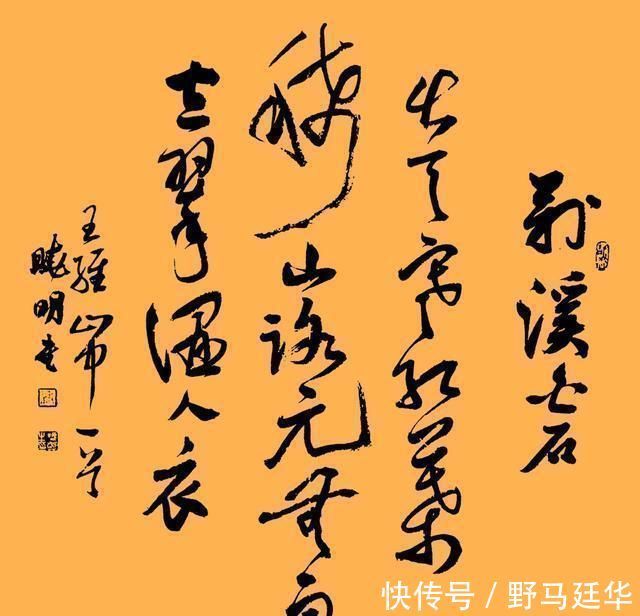 荆溪白石
出天寒红葉
稀山路元無雨
空翠湿人衣
王維山中一首
曉明書
快传号 / 野马廷华